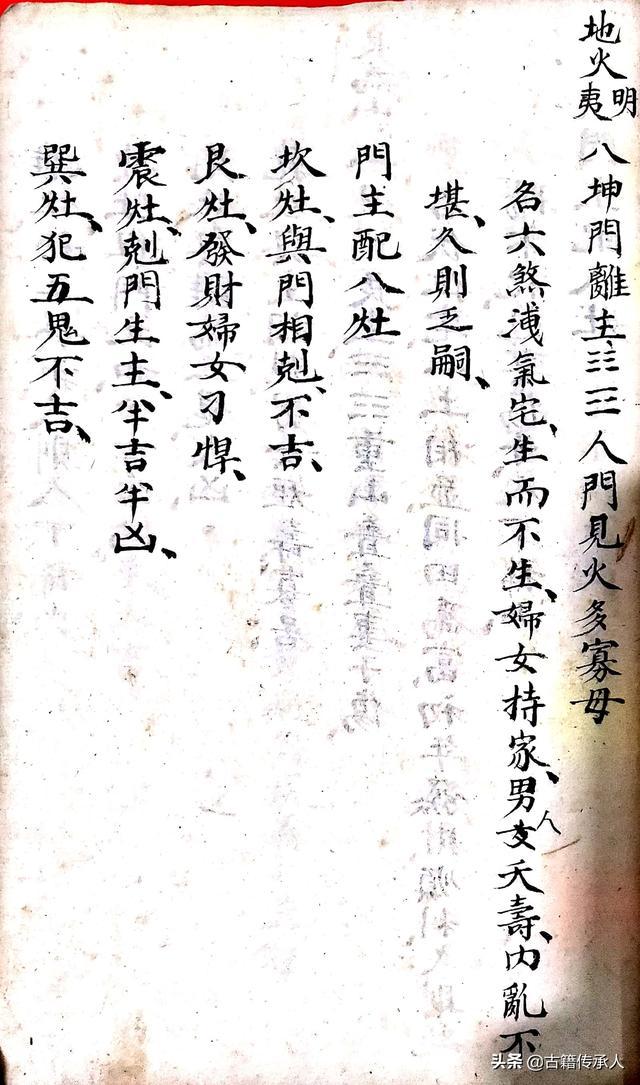 地火明夷 八坤門離主、☷☲人門見火多寡母
名六煞洩氣宅、生而不生、婦女持家、男女人夭壽、內亂不
堪、久則乏嗣、
門主配八灶
坎灶、與門相剋、不吉、
艮灶、發財婦女刁悍、
震灶、剋門生主、半吉半凶、
巽灶、犯五鬼不吉、
头条 @古籍传承人